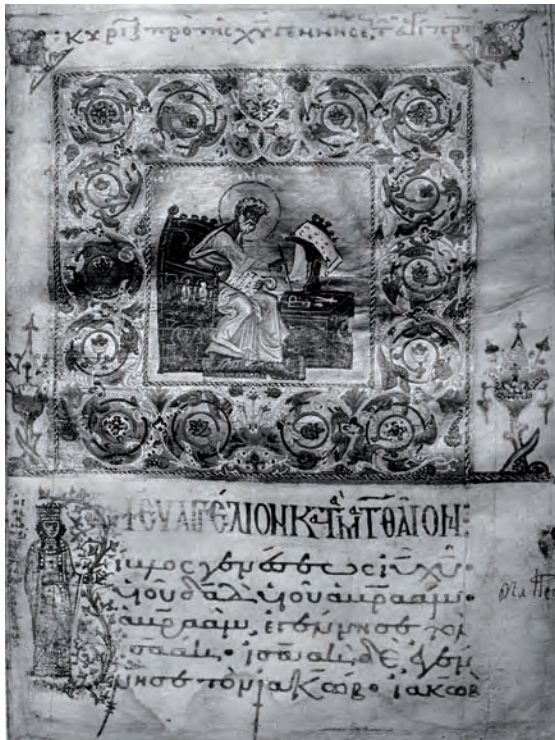 ΠΡΟ ΤΗΣ ΧΥ ΓΕΝΝΗΣΕ
ΕΥΑΓΓΕΛΙΟΝ ΚΑΤ ΜΑΤΘΑΙΟΝ:
ίβλος γενέσεως ἰῦ χῦ·
υἱοῦ δαδ υἱοῦ ἀβραάμ·
ἀβραὰμ, ἐγέννησε τὸν
ἰσαάκ· ἰσαὰκ δὲ, ἐγέν
νησε τὸν ἰακώβ· ἰακὼβ